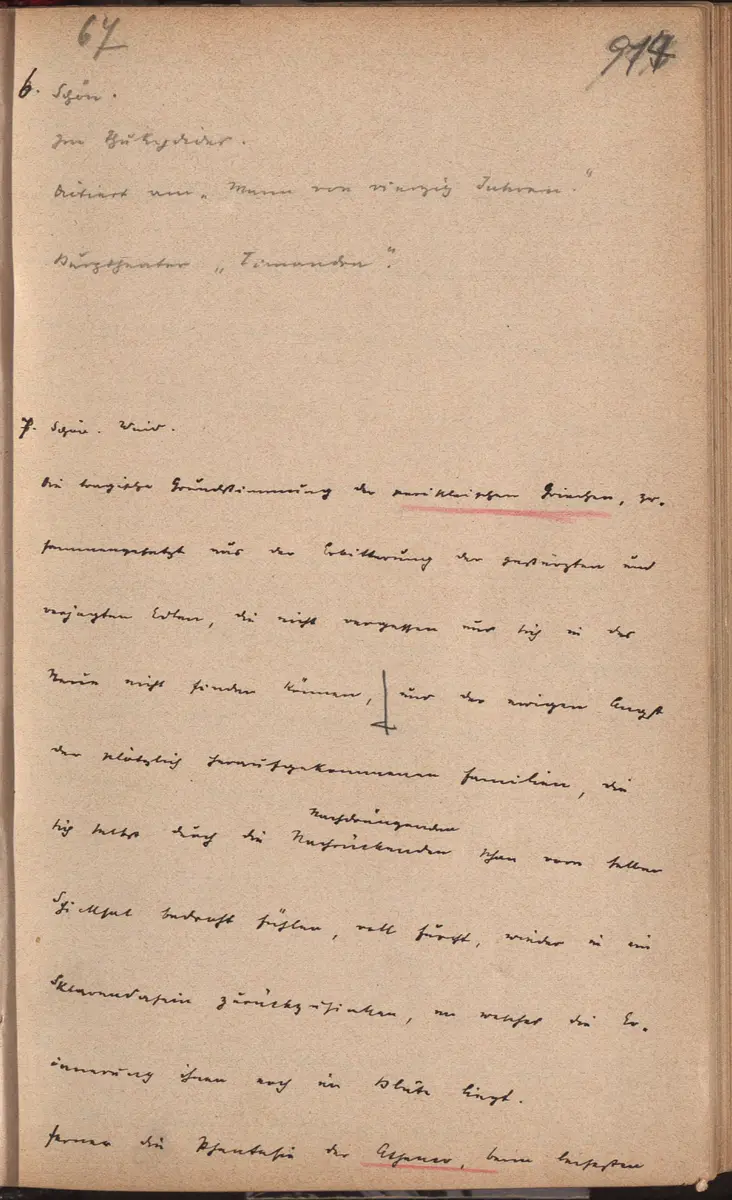 67
6. Schön.
Im Thukydides.
Citiert am „Mann von vierzig Jahren."
Burgtheater „Timandra".
7. Schön. Weid.
Die tragische Grundstimmung der perikleischen Griechen, zu-
sammengesetzt aus der Erbitterung der gestürzten und
verjagten Edlen, die nicht vergessen und sich in das
Neue nicht finden können, und der ewigen Angst
der plötzlich heraufgekommenen Familien, die
Nachdrängenden
sich selbst durch die Nachrückenden schon vom selben
Schicksal bedroht fühlen, voll Furcht, wieder in ein
Sklavendasein zurückzusinken, an welches die Er-
innerung ihnen noch im Blute liegt.
Ferner die Phantasie der Athener, beim leisesten